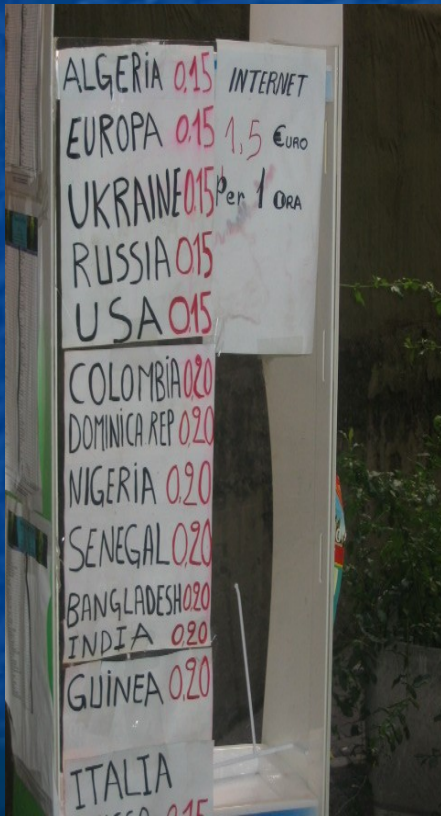 ALGERIA 0,15
EUROPA 0.15
UKRAINE 0.15
RUSSIA 0.15
USA 0.15
COLOMBIA 0,20
DOMINICA REP 0,20
NIGERIA 0,20
SENEGAL 0,20
BANGLADESH 0,20
INDIA 0.20
GUINEA 0,20
ITALIA
0.15
INTERNET
1,5 €URO
Per 1 ORA